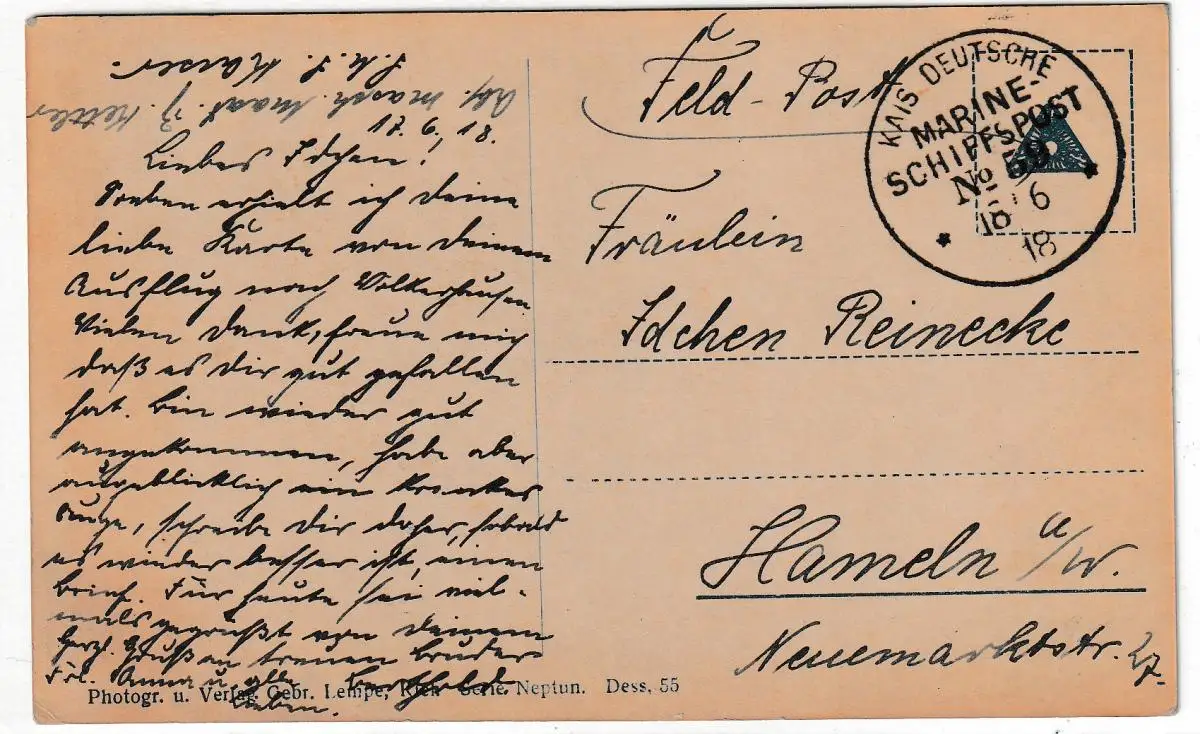 S.M.S. Kaiser.
Abs. Masch. Maat. J. Kettler
17. 6. 18.
Liebes Idchen!
Soeben erhielt ich Deine
liebe Karte von Deinem
Ausflug nach Völkerhausen
Vielen Dank, freue mich
daß es Dir gut gefallen
hat. Bin wieder gut
angekommen, habe aber
augenblicklich ein krankes
Auge, schreibe Dir daher, sobald
es wieder besser ist, einen
Brief. Für heute sei viel-
mals gegrüßt von Deinem
Herzl. Gruß an treuen Bruder
Frl. Anna u. alle
Lieben.
Photogr. u. Verlag Gebr. Lempe, Kiel Serie Neptun. Dess. 55
Feld-Post
KAIS. DEUTSCHE
MARINE-
SCHIFFSPOST
No 59
18 6
18
Fräulein
Idchen Reinecke
Hameln a/W.
Neuemarktstr. 27.